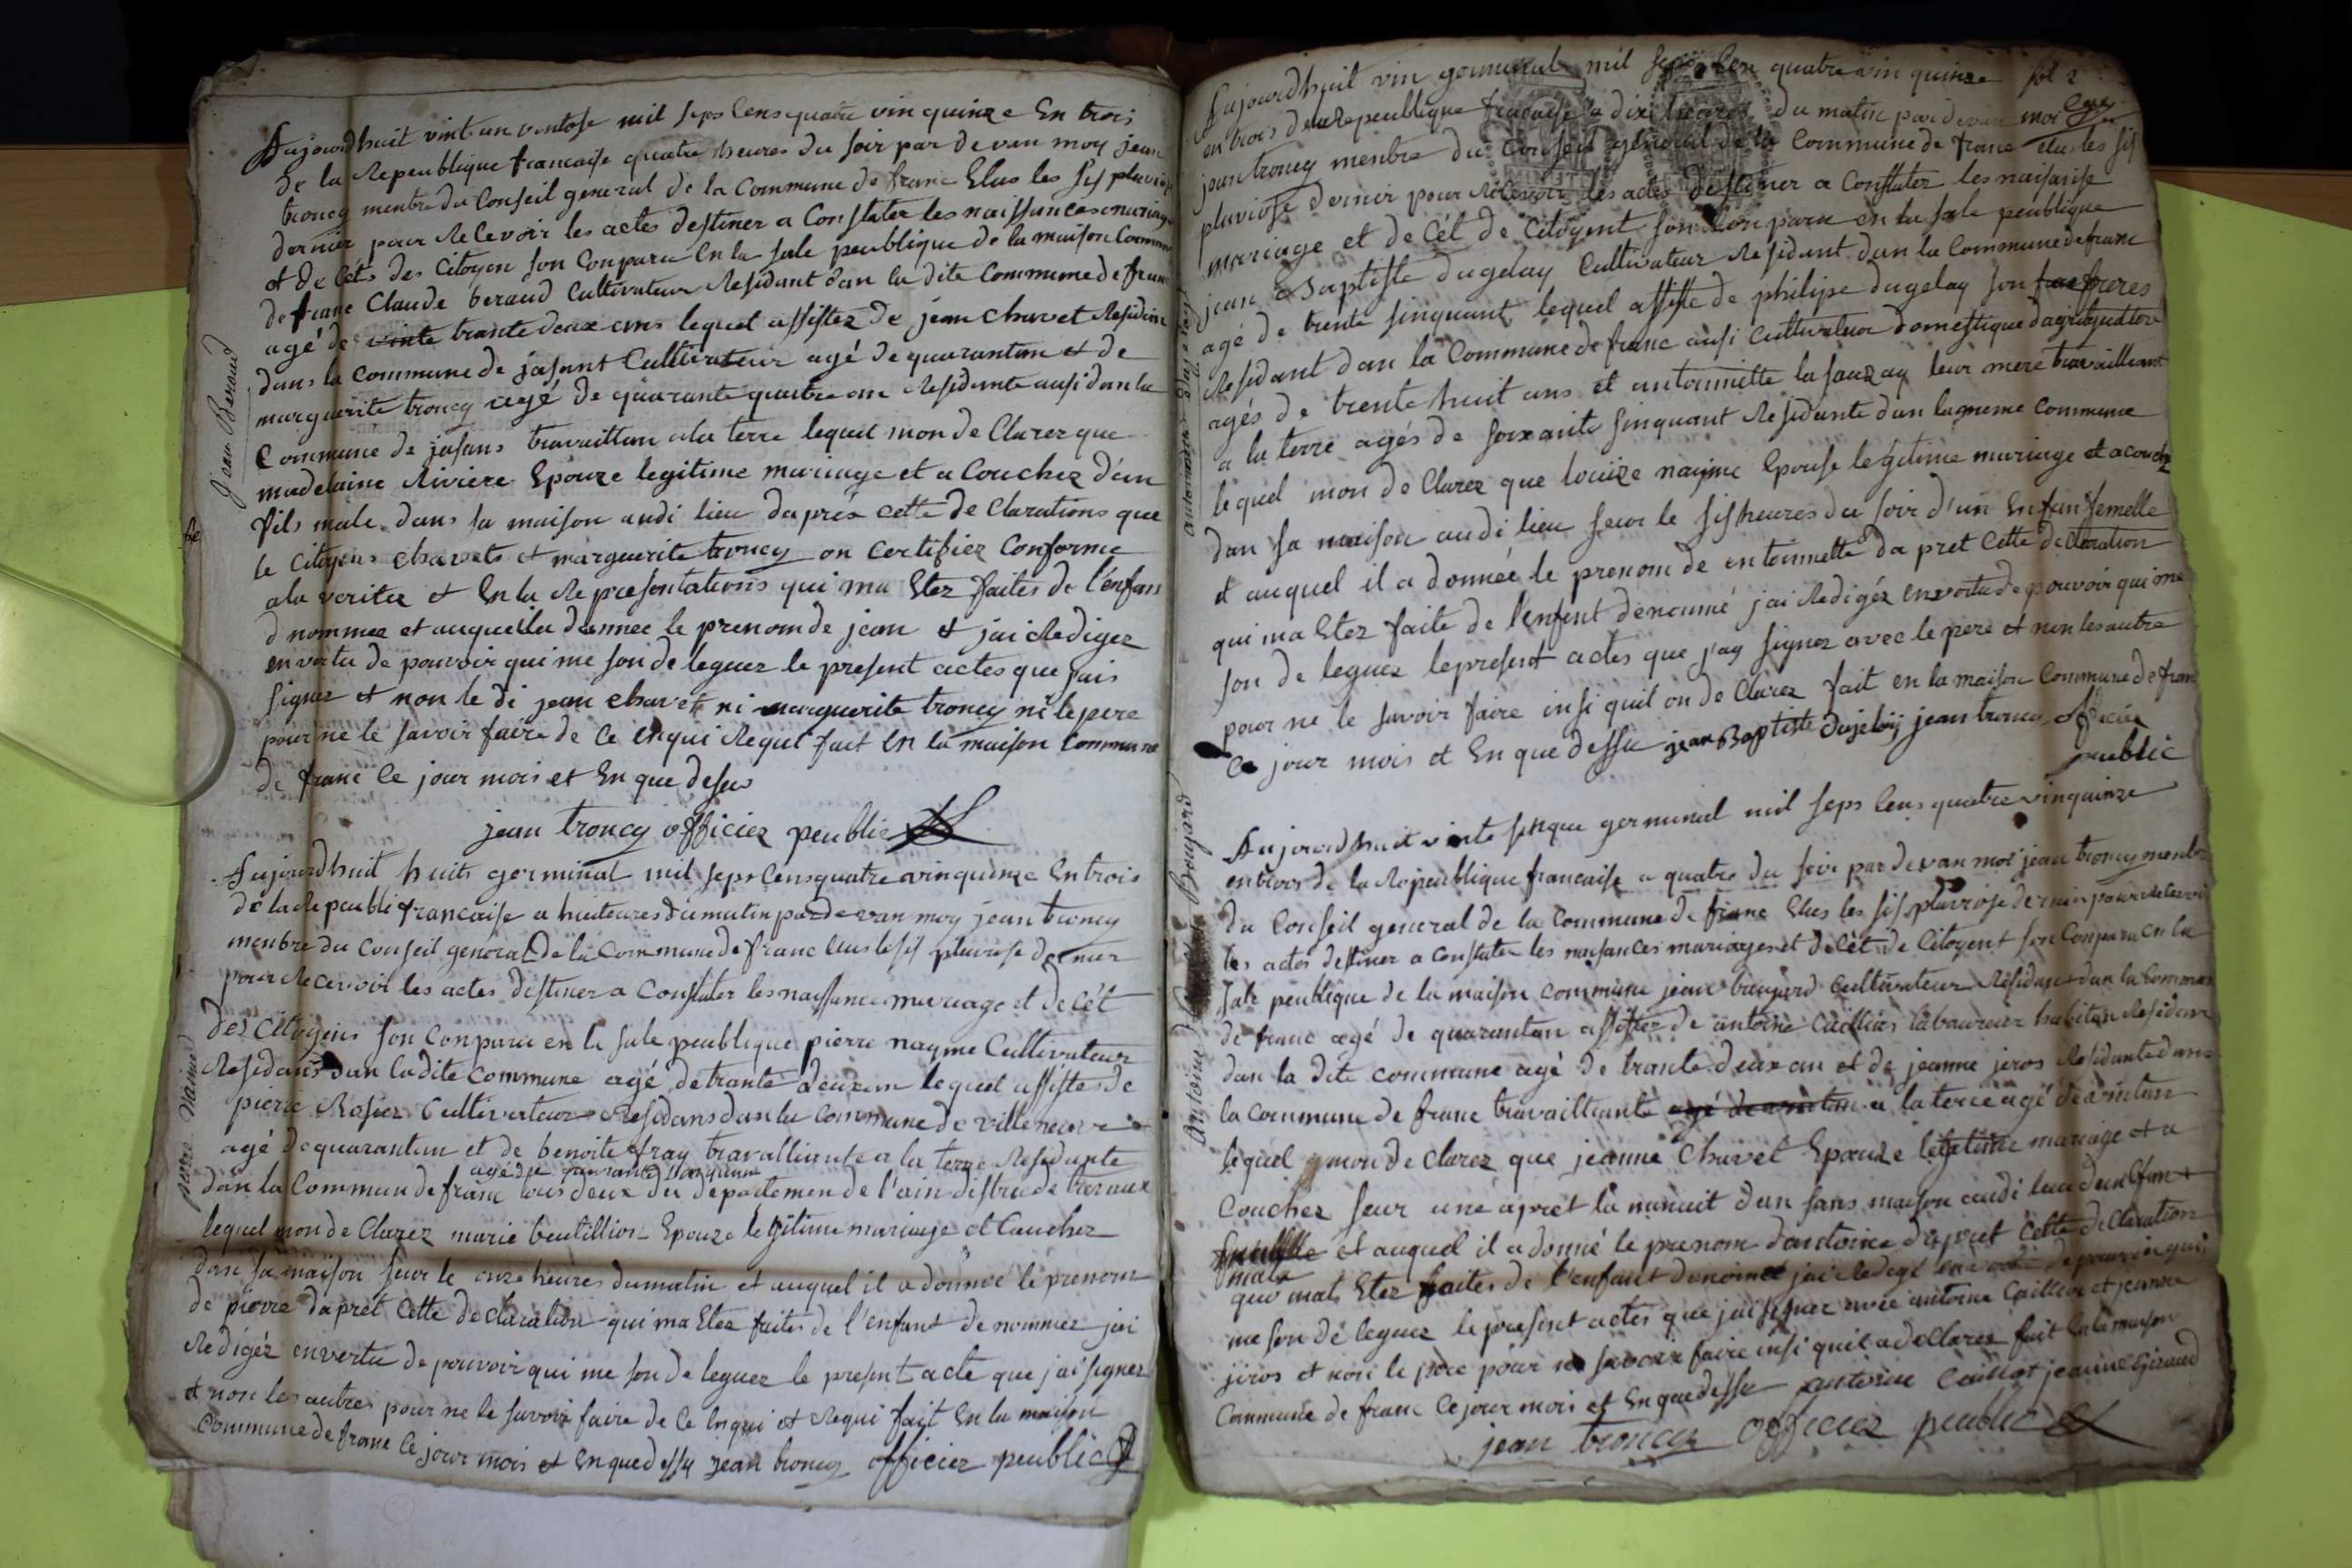 Aujourdhuit vint un ventose mil seps Cens quatre vin quinze En trois
de la Repeublique francaise quatre heures du soir par de van moy jean
troncy menbre du Conseil general de la Commune de franc Elus les sis pluviose
dernier pour Recevoir les actes destiner a Constater les naissances mariage
et de Cets des Citoyen son Conparu En la sale peublique de la maison Commune
de franc Claude beraud Cultivateur Residant dan la dite Commune de franc
agé de vinte trante deux ans lequel assistez de jean chavet Residan
dans la commune de jasant Cultivateur agé de quarantan et de
marguerite troncy agé de quarante quatre an Residante ausi dan la
Commune de jasans travaillan a la terre lequel mon de Clarez que
madelaine Riviere Epouze legitime mariage et a Couchez d'un
fils male dans sa maison audi lieu dapres cette de Clarations que
le Citoyens chavets et marguerite troncy on Certifiez Conforme
a la veritez et En la Representations qui ma Etez faites de l'enfan
d nommez et auquel il a donnee le prenom de jean et jai Rediger
en vertu de pouvoir qui me son de leguez le present actes que jais
signez et non le di jean chavet ni marguerite troncy ni le pere
pour ne le savoir faire de Ce enqui Requi fait En la maison Commune
de franc Ce jour mois et En que desus
jean troncy officiez peublic
Jean Beraud
Aujourdhuit huits germinal mil seps Cens quatre vinquinze En trois
de la Repeubli francaise a huit eures du matin par de van moy jean troncy
menbre du Conseil general de la Commune de franc Elus le sis pluviose dernier
pour Recevoir les actes destiner a Constater les naissance mariage et de Cét
des Citoyens son Conparu en la sale peublique pierre nayme Cultivateur
Residans dan la dite commune agé de trante deux an lequel assistes de
pierre Rosier Cultivateur Residans dan la Commune de villeneuve
agé de quarantan et de benoite fray travalliante a la terre Residante
agé de quarante cinquan
dan la Commun de franc tous deux du departemen de l'ain distric de trevaux
lequel mon de Clarez marie beutillion Epouze legitime mariage et Couchez
dan sa maison seur le onze heures du matin et auquel il a donnee le prenom
de pierre da pret Cette de Claration qui ma Etez faites de l'enfant de nommez jai
Redigéz en vertu de pouvoir qui me son de leguez le present acte que jai signez
et non les autres pour ne le savoir faire de Ce Enqui et Requi fait En la maison
Commune de franc Ce jour mois et En que dessu jean troncy officiez peublic
pierre Naime
Aujourdhuit vin germinal mil seps Cen quatre vin quinze fol 2
en trois de la Repeublique francaise a dix heures du matin par de van moi
jean troncy menbre du Conseil general de la Commune de franc elus les sis
pluviose dernier pour Recevoir les actes destiner a Constater les naisanse
mariage et de Cét de Citoyent son Conparu en la sale peublique
jean Baptiste dugelay Cultivateur Residant dan la Commune de franc
agé de trente sinquant lequel assiste de philipe dugelay son frere
Residant dan la Commune de franc ausi Cultivateur domestique
agés de trente huit ans et antoinette la sauzay leur mere travailliant
a la terre agés de soixante sinquant Residante dan la meme Commune
lequel mon de Clarez que louize nayme Epouse legitime mariage et a couchz
dan sa maison audi lieu seur le sis heures du soir d'un En fan femelle
et auquel il a donnée le prenom de entoinnette da pret Cette declaration
qui ma Etez faite de l'enfent denommé jai Redigéz en vertu de pouvoir qui me
son de leguez le present actes que jay signez avec le pere et non les autre
pour ne le savoir faire insi quil on de Clarez fait en la maison Commune de franc
Ce jour mois et En que dessu jean Baptiste dujelay jean troncy officiez
public
Aujourdhuit vinte sinque germinal mil seps Cens quatre vinquinze
en trois de la Repeublique francaise a quatre du soir par de van moi jean troncy menbre
du Conseil general de la Commune de franc Elus les sis pluviose dernier pour Recevoir
les actes destiner a Constater les naisances mariages et de Cét de Citoyent son Conparu en la
sale peublique de la maison commune jean boujard Cultivateur Residant dan la Commune
de franc agé de quarantan assistez de antoine Caillios laboureur habitan Residan
dan la dite commune agé de trante deux an et de jeanne jiros Residante dans
la commune de franc travailliante agé de vintan a la terre agé de vintan
lequel mon de Clarez que jeanne Chavet Epouze legitime mariage et a
Couchez seur une apret la minuit dan sans maison audi lieu dun Efan
femelle et auquel il a donné le prenom d'antoine da pret Cette de Claration
male
que mas Etez faites de l'enfant denomee jai Redigé en vertu de pouvoir qui
me son de leguez le present actes que jai signez avec antoine Caillios et jeanne
jiros et non le pere pour ne savoir faire insi quil a de Clarez fait En la maison
Commune de franc Ce jour mois et En que dessu antoine Caillot jeanne Giraud
jean troncy officiez peublic
Antoine Boujard